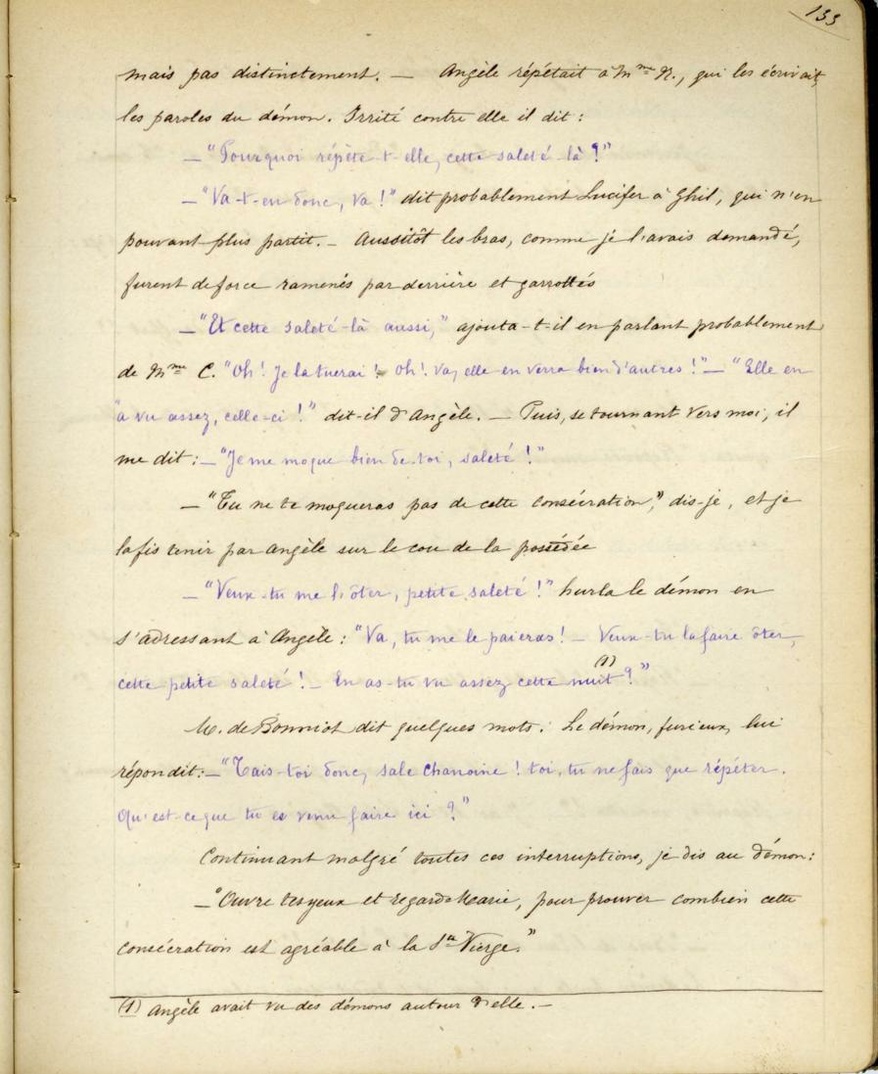 133
mais pas distinctement. — Angèle répétait à Mme N., qui les écrivait,
les paroles du démon. Irrité contre elle il dit :
— "Pourquoi répète-t-elle, cette saleté-là ?"
— "Va-t-en donc, va !" dit probablement Lucifer à Ghil, qui n'en
pouvant plus partit. — Aussitôt les bras, comme je l'avais demandé,
furent de force ramenés par derrière et garrottés
— "Et cette saleté-là aussi," ajouta-t-il en parlant probablement
de Mme C. "Oh ! Je la tuerai ! — Oh ! va, elle en verra bien d'autres !" — "Elle en
"a vu assez, celle-ci !" dit-il d'Angèle. — Puis, se tournant vers moi, il
me dit : — "Je me moque bien de toi, saleté !"
— "Tu ne te moqueras pas de cette consécration," dis-je, et je
la fis tenir par Angèle sur le cou de la possédée
— "Veux-tu me l'ôter, petite saleté !" hurla le démon en
s'adressant à Angèle : "Va, tu me le paieras ! — Veux-tu la faire ôter,
cette petite saleté ! — En as-tu vu assez cette nuit (1) ?"
M. de Bonniot dit quelques mots. Le démon, furieux, lui
répondit : — "Tais-toi donc, sale chanoine ! toi, tu ne fais que répéter.
Qu'est-ce que tu es venu faire ici ?"
Continuant malgré toutes ces interruptions, je dis au démon :
— "Ouvre tes yeux et regarde Marie, pour prouver combien cette
consécration est agréable à la Ste Vierge."
(1) Angèle avait vu des démons autour d'elle. —